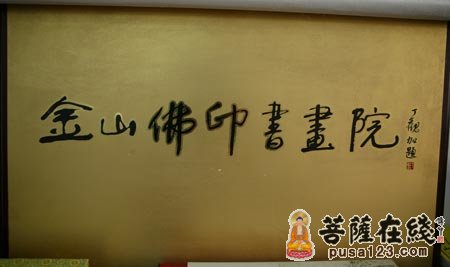 金山佛印書畫院
丁觀加題
菩薩在綫
pusa123.com